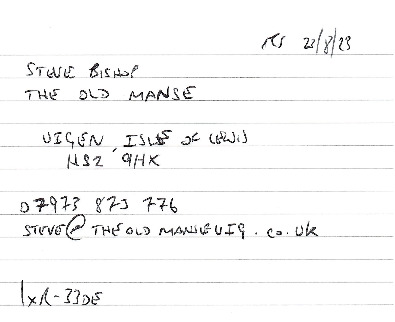 23/8/23
STEVE BISHOP
THE OLD MANSE
UIGEN, ISLE OF LEWIS
HS2 9HX
07973 873 776
STEVE@THEOLDMANSEUIG.CO.UK
1xR-33DE